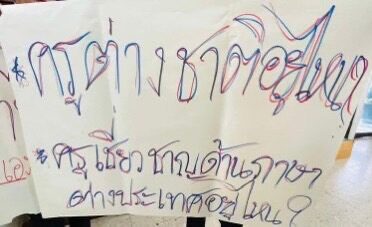 * ครูต่างชาติอยู่ไหน?
* ครูเชี่ยวชาญด้านภาษา
ต่างประเทศอยู่ไหน?